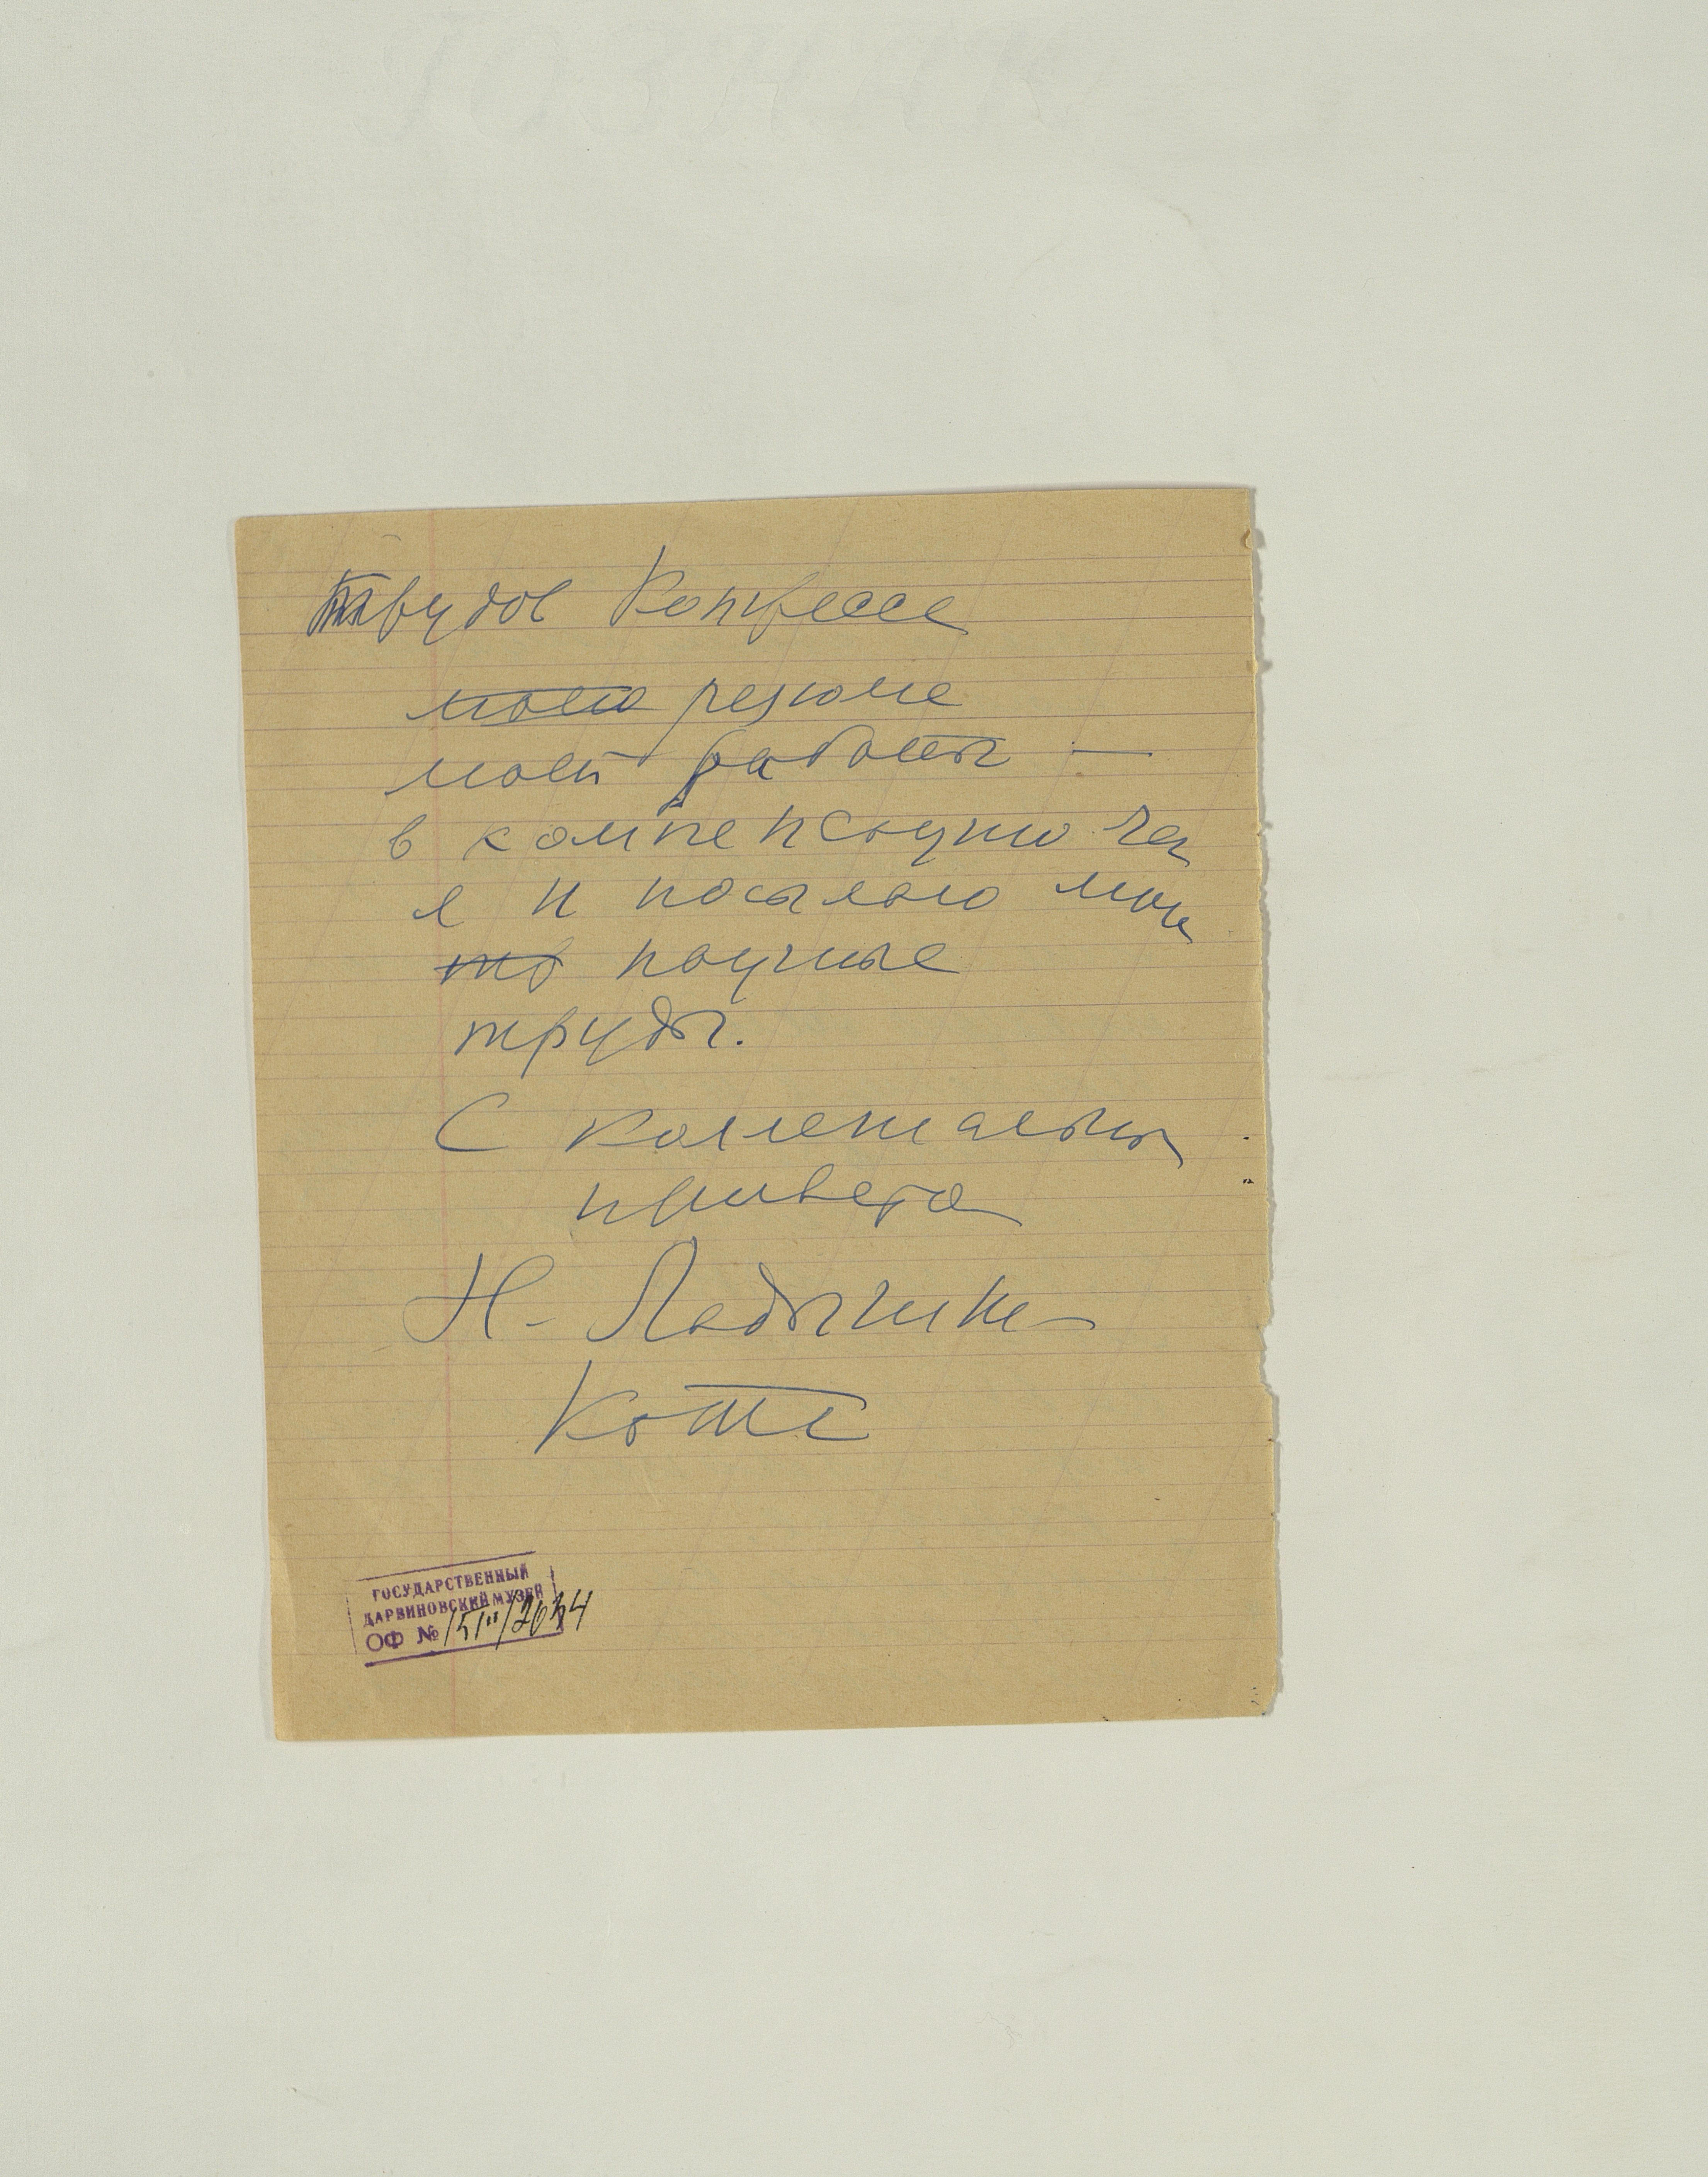 Трудов Конгресса
моего резюме
моей работы —
в компенсацию чего
я и посылаю мои
научные
труды.
С коллегиальным
приветом
Н. Ладыгина-
Котс
ГОСУДАРСТВЕННЫЙ
ДАРВИНОВСКИЙ МУЗЕЙ
ОФ №